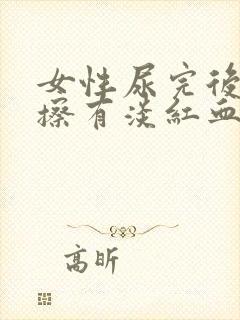 女性尿完後
擦有淡紅血
高昕